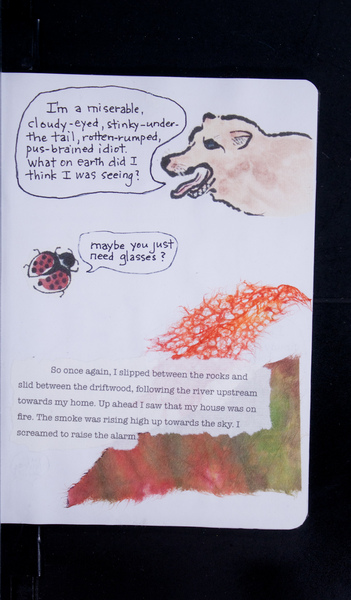 I'm a miserable,
cloudy-eyed, stinky-under-
the tail, rotten-rumped,
pus-brained idiot.
What on earth did I
think I was seeing?
maybe you just
need glasses?
So once again, I slipped between the rocks and
slid between the driftwood, following the river upstream
towards my home. Up ahead I saw that my house was on
fire. The smoke was rising high up towards the sky. I
screamed to raise the alarm.